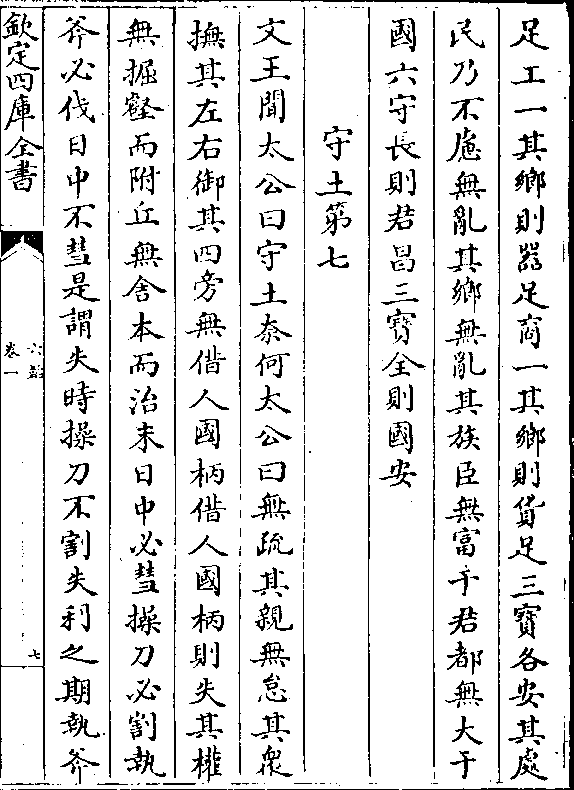 足工一其鄉則器足商一其鄉則貨足三寶各安其處
民乃不慮無亂其鄉無亂其族臣無富于君都無大于
國六守長則君昌三寶全則國安
守土第七
文王問太公曰守土奈何太公曰無疏其親無怠其衆
撫其左右御其四旁無借人國柄借人國柄則失其權
無掘壑而附丘無舍本而治末日中必彗操刀必割執
斧必伐日中不彗是謂失時操刀不割失利之期執斧
欽定四庫全書
六韜
卷一
七